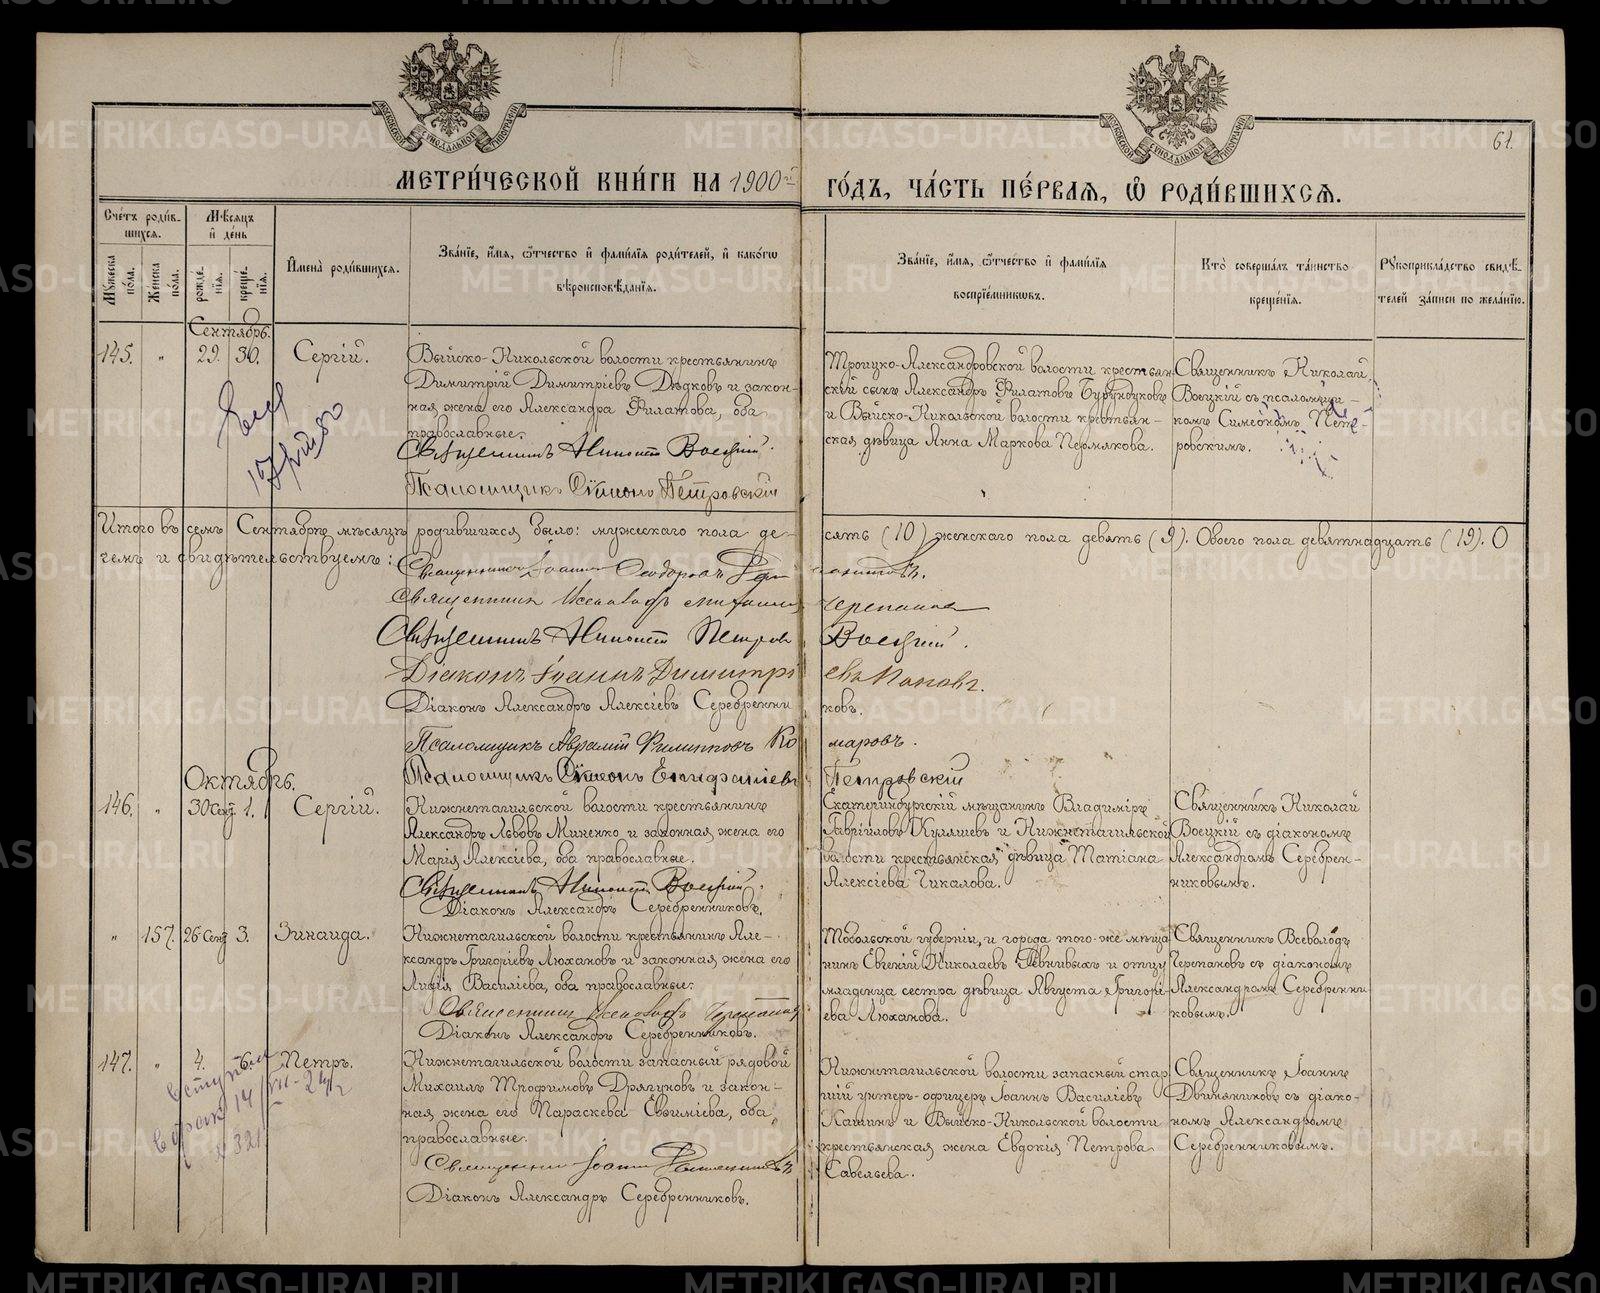 61.
МЕТРИ́ЧЕСКОЙ КНИ́ГИ НА 1900й ГО́ДЪ, ЧА́СТЬ ПЕ́РВАЯ, Ѿ РОДИ́ВШИХСЯ.
Сче́тъ роди́вшихся.
Мꙋ́жеска по́ла.
Же́нска по́ла.
Мѣ́сяцъ и де́нь
рожде́нїя.
креще́нїя.
И҆мена̀ роди́вшихся.
Зва́нїе, и҆́мя, ѻ҆́тчество и҆ фами́лїя роди́телей, и҆ како́гѡ
вѣроисповѣ́данїя.
Зва́нїе, и҆́мя, ѻ҆́тчество и҆ фами́лїя
воспрїе́мникѡвъ.
Кто̀ соверша́лъ та́инство
креще́нїя.
Рꙋкоприкла́дство свидѣ́-
телей за́писи по жела́нїю.
Сентябрь.
145. „ 29. 30. Сергій.
Выйско-Никольской волости крестьянинъ
Димитрій Димитріевъ Дѣдковъ и закон-
ная жена его Александра Филатова, оба
православные.
Священникъ Николай Воецкій.
Псаломщикъ Симеонъ Петровскій
Троицко-Александровской волости крестьян-
скій сынъ Александръ Филатовъ Бурундуковъ
и Выйско-Никольской волости крестьян-
ская дѣвица Анна Маркова Пермякова.
Священникъ Николай
Воецкій съ псаломщи-
комъ Симеономъ Пет-
ровскимъ.
Итого въ семъ Сентябрѣ мѣсяцѣ родившихся было: мужескаго пола де- сять (10) женскаго пола девять (9). Обоего пола девятнадцать (19). О
чемъ и свидѣтельствуемъ:
Священникъ Іоаннъ
Священникъ Всеволодъ Черепановъ
Священникъ Николай Петровъ Воецкій.
Діаконъ Іоаннъ Димитріевъ Поповъ.
Діаконъ Александръ Алексіевъ Серебренниковъ.
Псаломщикъ Аврамій Филипповъ Комаровъ.
Псаломщикъ Симеонъ Епифаніевъ Петровскій
Октябрь.
146. „ 30 Сент. 1. Сергій.
Нижнетагильской волости крестьянинъ
Александръ Львовъ Миненко и законная жена его
Марія Алексіева, оба православные.
Священникъ Николай Воецкій.
Діаконъ Александръ Серебренниковъ.
Екатеринбургскій мѣщанинъ Владиміръ
Гавріиловъ Куляшевъ и Нижнетагильской
волости крестьянская дѣвица Татіана
Алексіева Чикалова.
Священникъ Николай
Воецкій съ діакономъ
Александромъ Серебрен-
никовымъ.
„ 157. 26 Сент. 3. Зинаида.
Нижнетагильской волости крестьянинъ Але-
ксандръ Григоріевъ Люхановъ и законная жена его
Лидія Василіева, оба православные.
Священникъ Всеволодъ Черепановъ
Діаконъ Александръ Серебренниковъ.
Тобольской губерніи, и города того-же мѣща
нинъ Евгеній Николаевъ Ревнивыхъ и отцу
младенца сестра дѣвица Августа Григорі-
ева Люханова.
Священникъ Всеволодъ
Черепановъ съ діакономъ
Александромъ Серебренни
ковымъ.
147. „ 4. 6. Петръ.
Нижнетагильской волости запасный рядовой
Михаилъ Трофимовъ Драгуновъ и закон-
ная жена его Параскева Евѳиміева, оба
православные.
Священникъ Іоаннъ
Діаконъ Александръ Серебренниковъ.
Нижнетагильской волости запасный стар
шій унтеръ-офицеръ Іоаннъ Василіевъ
Кашинъ и Выйско-Никольской волости
крестьянская жена Евдокія Петрова
Савельева.
Священникъ Іоаннъ
Двиняниковъ съ діако-
номъ Александромъ
Серебренниковымъ.